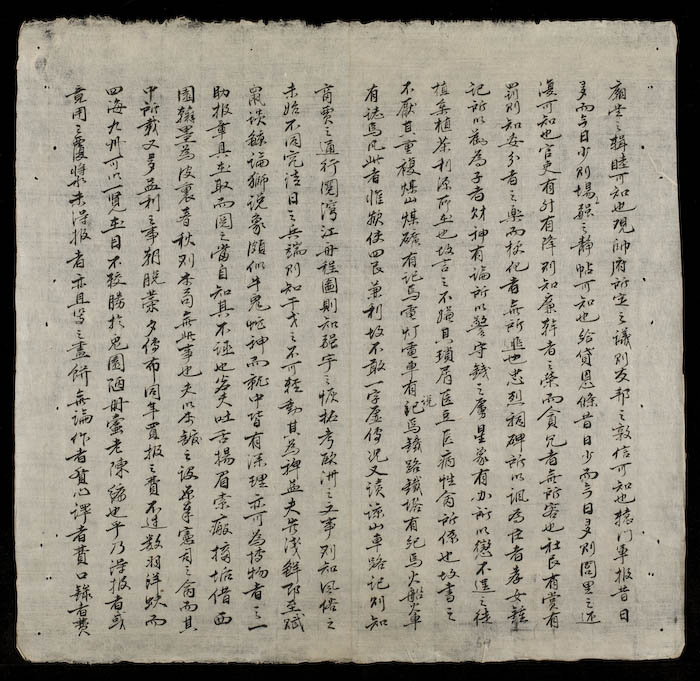 廟堂之輯睦可知也觀帥府所定之議則友邦之敦信可知也轅門軍報昔日
多而今日少則場疆之靜帖可知也給貸恩條昔日少而今日多則閭里之还
復可知也官吏有升有降則知廉幹者之榮而貪冗者無所容也社民有賞有
罰則知安分者之樂而梗化者無所逃也忠烈祠碑所以諷為臣者孝女雜
記所以為為子者財神有論所以警守錢之虜星象有办所以懲不逞之徒
植桑植茶利源所在也故言之不嫌其瑣屑医豆医病性命所係也故書之
不厭其重複煤山煤礦有記焉電灯電車有說焉鐵路鐵塔有紀焉火船火車
有誌焉凡此者惟欲使四民兼利故不敢一字虛傳況又讀諒山車路記則知
商賈之通行閱灣江舟程圖則知疆宇之恢拓考歐洲之立事則知風俗之
未始不同究清日之兵端則知干戈之不可輕動其為裨益夫豈淺鮮耶至賦
鼠談鯨論獅說象頗似牛鬼蛇神而就中皆有深理亦可為博物者之一
助报章具在取而閱之當自知其不誣也若夫吐舌揚眉索瘢摘垢借西
園翰墨為皮裏春秋則本局無此事也夫以本報之設原奉憲司之命而其
中所載又多益利之事朝脫藁夕傳布同年買报之費不过数羽洋蚨而
四海九州可以一覧在目不較勝於兔園陋冊蠹老陳編也乎乃得报者或
竟用之覆醬未得报者亦且等之畫餅無論作者負心譯者費口錄者費